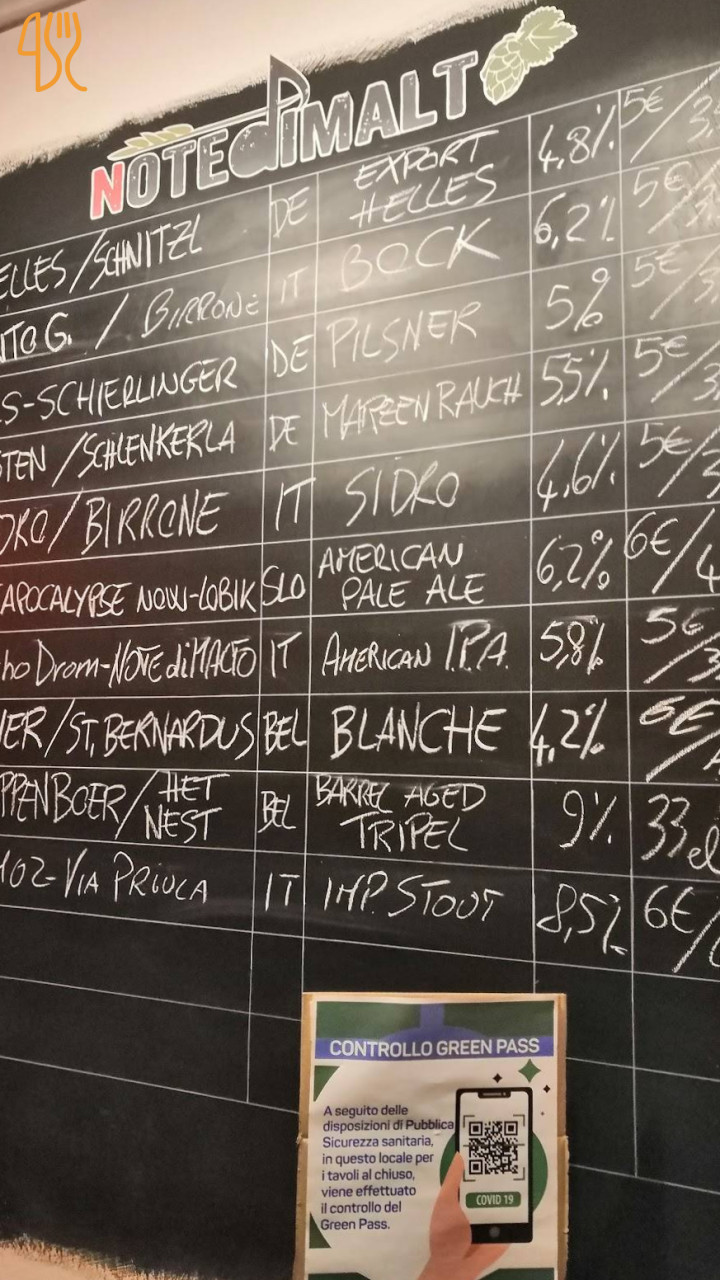 NOTEdiMALT
ELLES/SCHNITZL DE EXPORT HELLES 4,8% 5€/3,
NTO G. / BIRRONE IT BOCK 6,2% 5€/3,
LS-SCHIERLINGER DE PILSNER 5% 5€/3,
STEN/SCHLENKERLA DE MARZEN RAUCH 5,5% 5€/3
DRO/BIRRONE IT SIDRO 4,6% 5€/3
APOCALYPSE NOW-LOBIK SLO AMERICAN PALE ALE 6,2% 6€/4
ho Drom-NOTE di MALTO IT AMERICAN I.P.A. 5,8% 5€/3
IER/ST. BERNARDUS BEL BLANCHE 4,2% 6€/4
PPENBOER/HET NEST BEL BARREL AGED TRIPEL 9% 33 cl
102-VIA PRIULA IT IMP. STOUT 8,5% 6€/
CONTROLLO GREEN PASS
A seguito delle
disposizioni di Pubblica
Sicurezza sanitaria,
in questo locale per
i tavoli al chiuso,
viene effettuato
il controllo del
Green Pass.
COVID 19